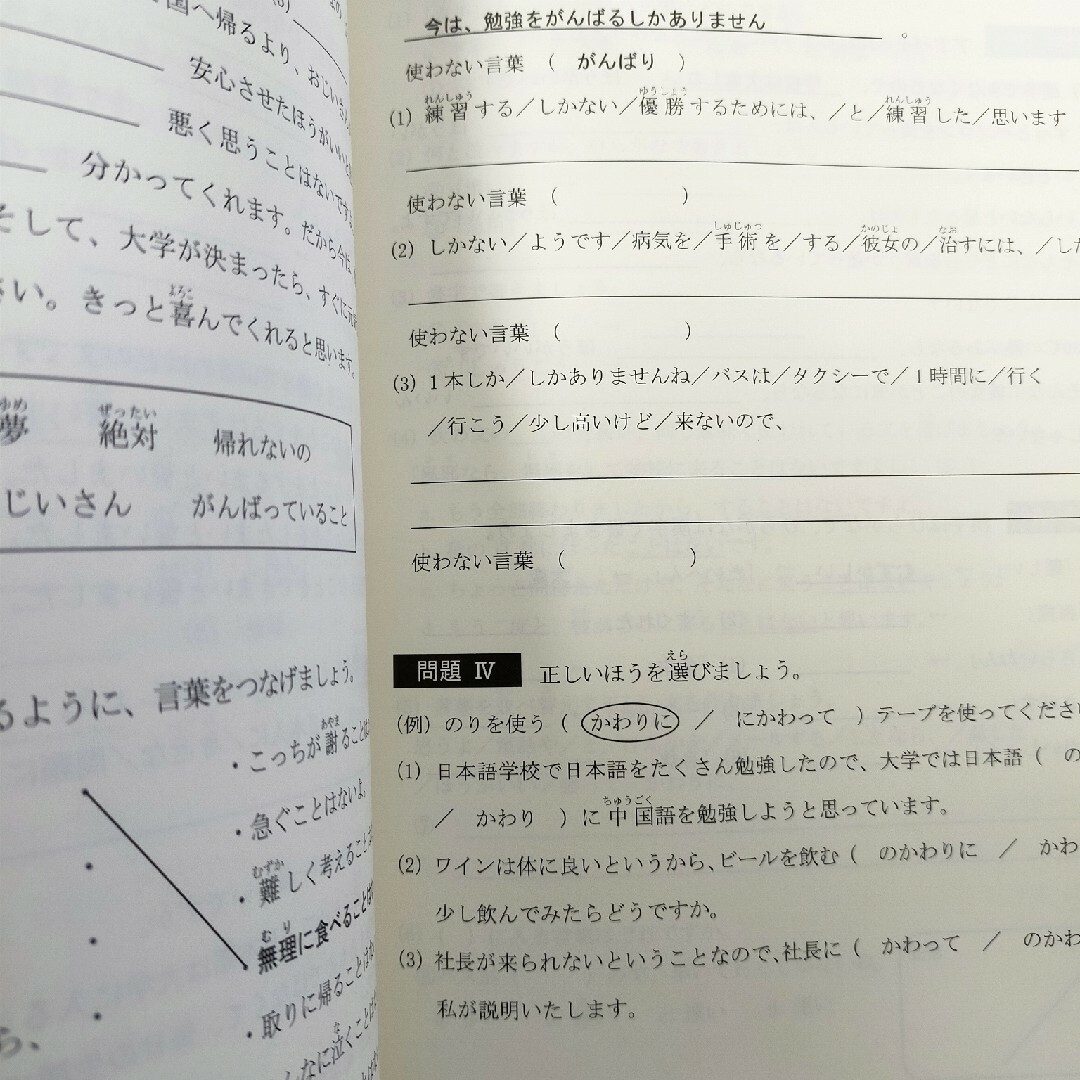 国へ帰るより、おじいさん
安心させたほうがいいと
悪く思うことはないです
分かってくれます。だから今は
そして、大学が決まったら、すぐに
さい。きっと喜んでくれると思います。
よろこ
ゆめ
夢
ぜったい
絶対
帰れないの
じいさん
がんばっていること
るように、言葉をつなげましょう。
あやま
・こっちが謝ることは
・急ぐことはないよ。
むずか
・難しく考えること
むり
無理に食べることは
・取りに帰ることはな
な
んなに泣くことは
ら、
今は、勉強をがんばるしかありません。
使わない言葉 ( がんばり )
れんしゅう ゆうしょう れんしゅう
(1) 練習する/しかない/優勝するためには、/と/練習した/思います
使わない言葉 ( )
しゅじゅつ かのじょ なお
(2) しかない/ようです/病気を/手術を/する/彼女の/治すには、/した
使わない言葉 ( )
(3) 1本しか/しかありませんね/バスは/タクシーで/1時間に/行く
/行こう/少し高いけど/来ないので、
使わない言葉 ( )
問題 Ⅳ 正しいほうを選びましょう。
えら
(例) のりを使う ( かわりに / にかわって ) テープを使ってくださ
(1) 日本語学校で日本語をたくさん勉強したので、大学では日本語 ( の
ちゅうごく
/ かわり ) に中国語を勉強しようと思っています。
(2) ワインは体に良いというから、ビールを飲む ( のかわりに / かわ
少し飲んでみたらどうですか。
(3) 社長が来られないということなので、社長に ( かわって / のかわ
私が説明いたします。